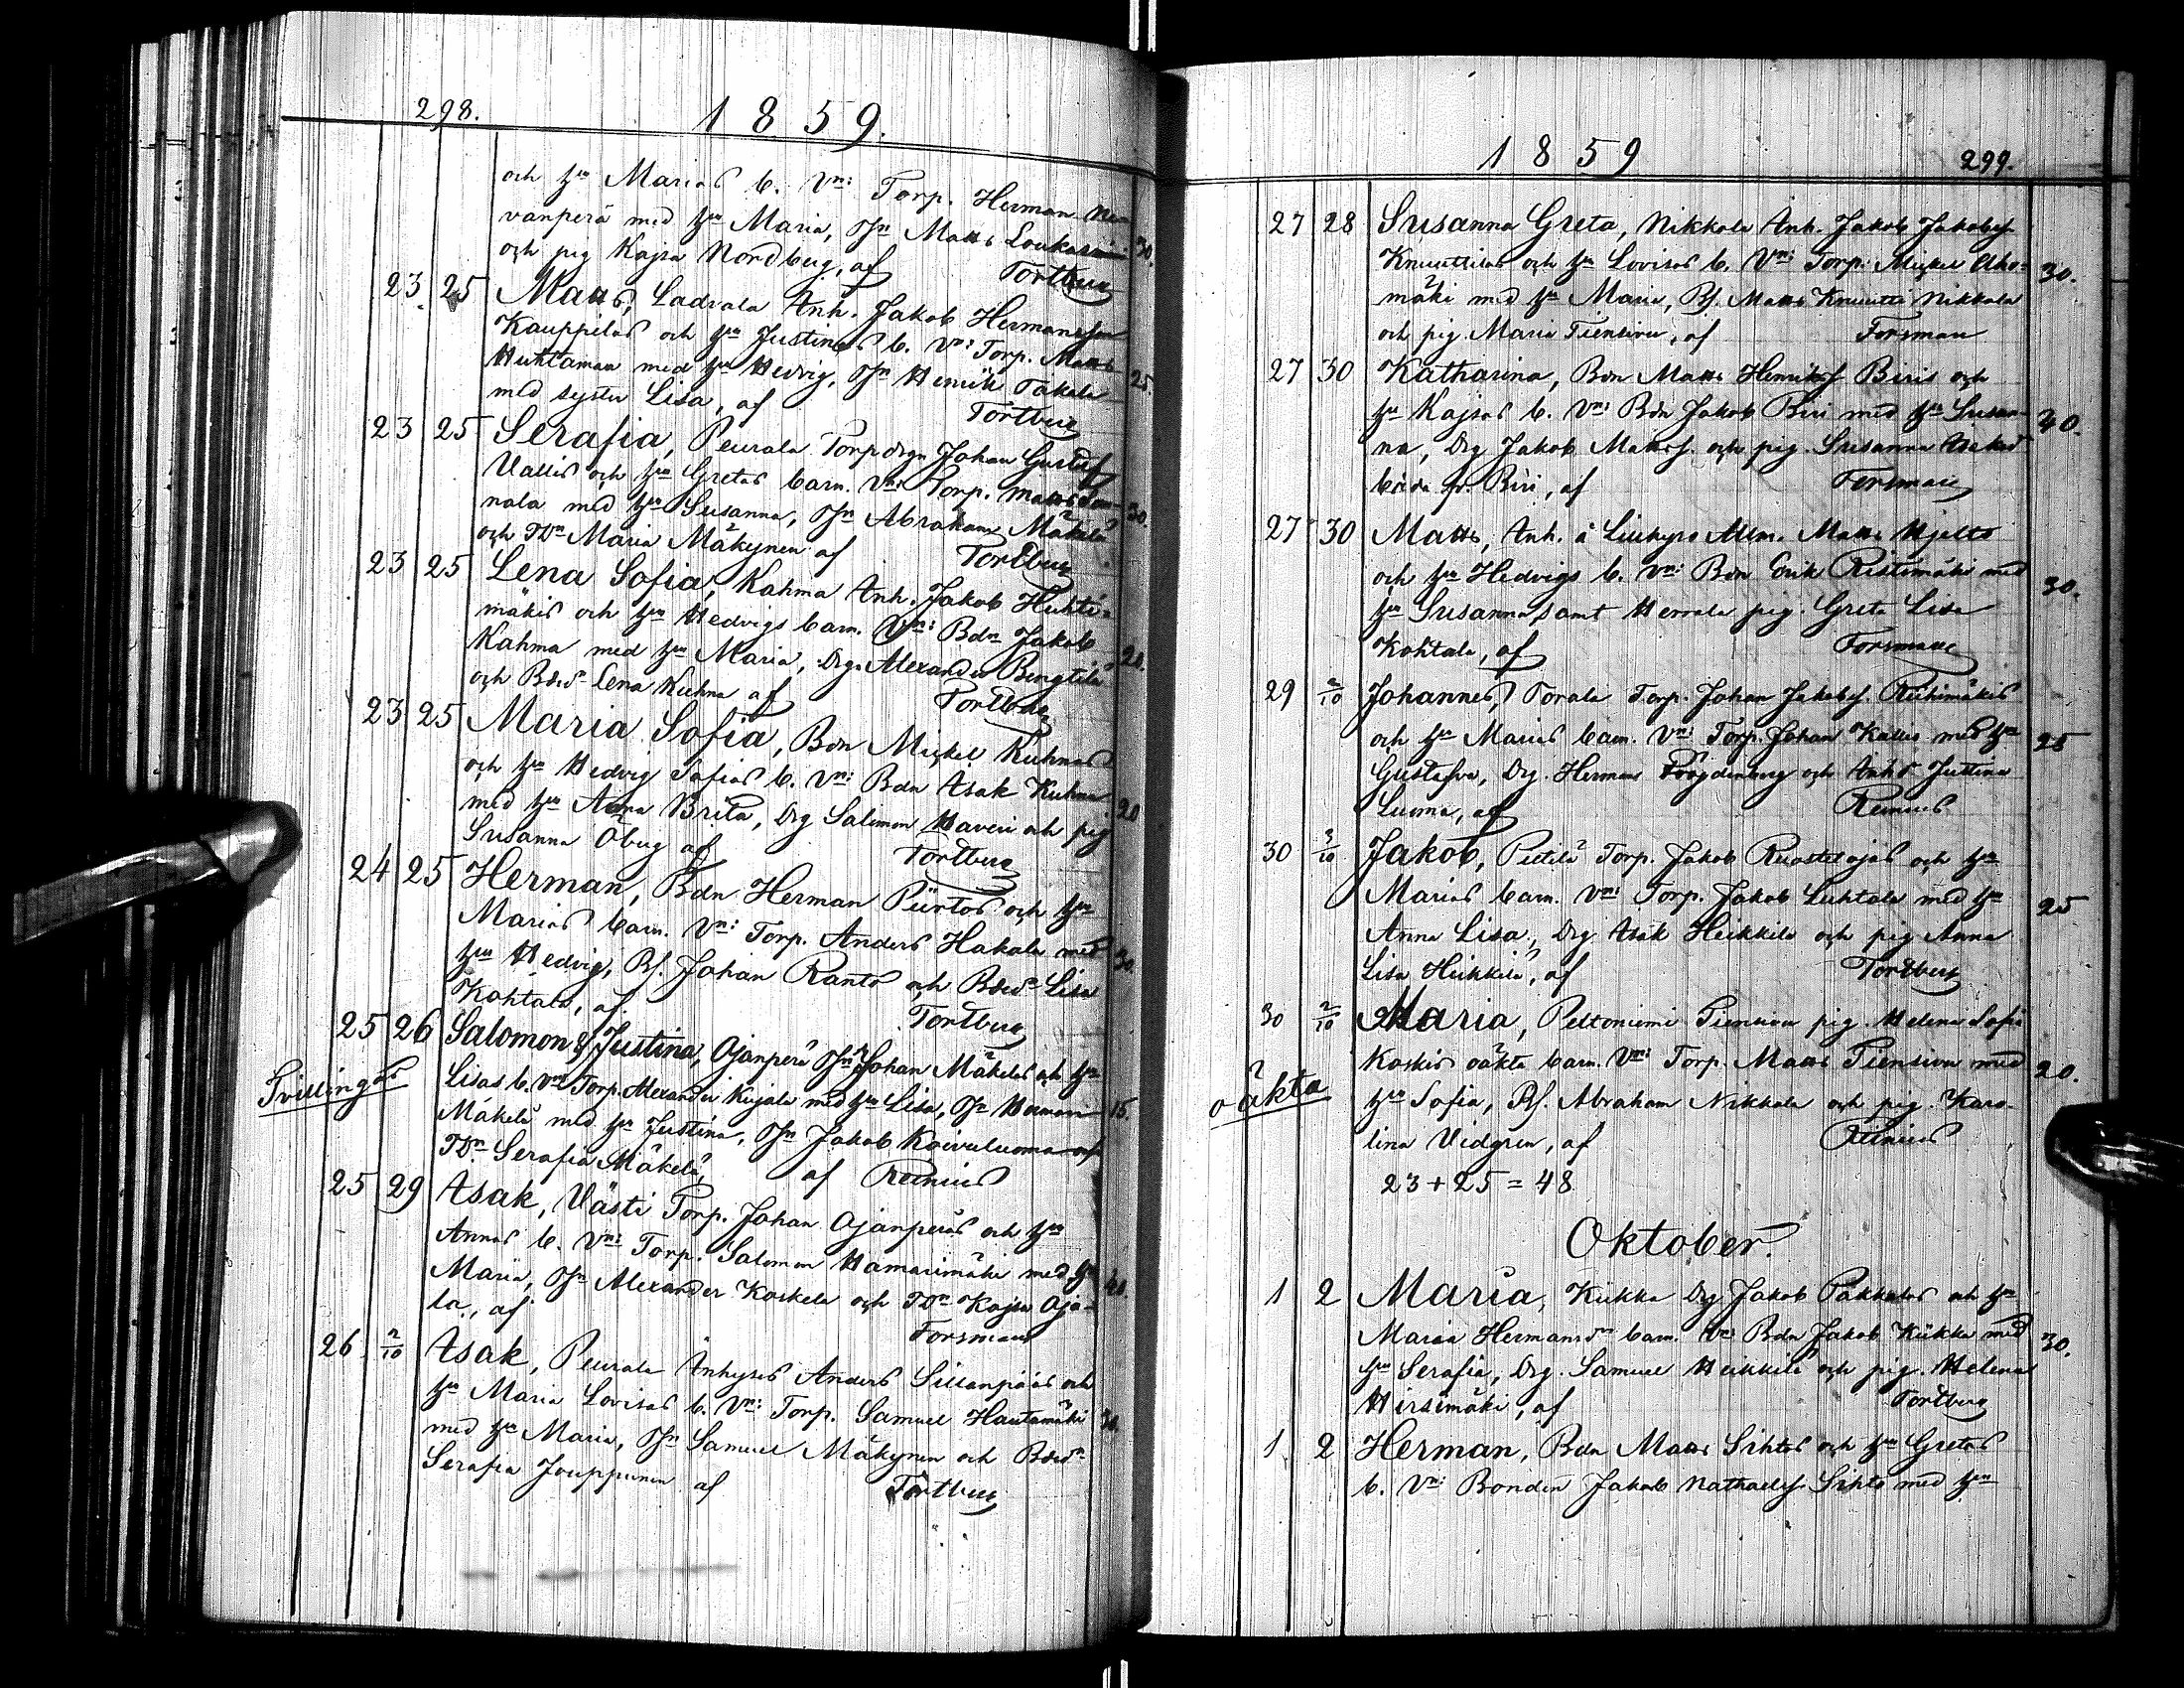 298.
1859.
och hu Marias b. Vn: Torp. Herman Ne-
vanperä med hu Maria, Jn Matts Loukasmäki 30.
och pig Kajsa Nordberg, af Tortberg
23. 25 Matts, Ladvala Inh. Jakob Hermansson
Kauppilas och hu Justinas b. Vn: Torp. Matts
Huhtamaa med hu Hedvig, Jn Henrik Takala 25.
med syster Lisa, af Tortberg
23 25 Serafia, Peurala Torpdrgn Johan Gustaf
Vallis och hu Gretas barn. Vn: Torp. Matts
nala med hu Susanna, Jn Abraham Mäkelä 30.
och TDr Maria Mäkynen af Tortberg
23 25 Lena Sofia, Kahma Inh. Jakob Huhti-
mäkis och hu Hedvigs barn. Vn: Bdn Jakob
Kahma med hu Maria, Drgn Alexander Bengtilä 20.
och Bdrd Lena Kuhna af Tortberg
23 25 Maria Sofia, Bdn Mickel Kuhnas
och hu Hedvig Sofias b. Vn: Bdn Isak Kuhna
med hu Anna Brita, Drg Salomon Haveri och pig 20
Susanna Öberg af Tortberg
24 25 Herman, Bdn Herman Piirtos och hu
Marias barn. Vn: Torp. Anders Hakala med
hu Hedvig, Bs. Johan Ranto och Bdrd Lisa 30.
Kohtala, af. Tortberg
25 26 Salomon & Justina, Ojanperä Jn Johan Mäkeläs och hu
Tvillingar
Lisas b. Vn: Torp. Alexander Kujala med hu Lisa, Jn Herman 15.
Mäkelä med hu Justina, Jn Jakob Koivuluoma och
TDr Serafia Mäkelä, af Reinius
25 29 Isak, Västi Torp. Johan Ojanperäs och hu
Annas b. Vn: Torp. Salomon Hamarimäki med hu
Maria, Jn Alexander Koskela och TDr Kajsa Oja- 40.
la, af Forsman
26. 2/10 Isak, Peurala Inhyses Anders Sillanpääs och
hu Maria Lovisas b. Vn: Torp. Samuel Hautamäki
med hu Maria, Jn Samuel Mäkynen och Bdrd 30.
Serafia Jouppinen af Tortberg
1859
299.
27 28 Susanna Greta, Nikkola Inh. Jakob Jakobss
Knuuttilas och hu Lovisas b. Vn: Torp. Mickel Aho- 30.
mäki med hu Maria, Bs. Matts Knuutti Nikkola
och pig. Maria Tiensivu, af Forsman
27 30 Katharina, Bdn Matts Henrikss Biris och
hu Kajsas b. Vn: Bdn Jakob Biri med hu Susan-
na, Drg Jakob Matss. och pig. Susanna Isaksd 40.
båda fr. Biri, af Forsman
27 30 Matts, Inh. å Liukyro Allm. Matts Hjelts
och hu Hedvigs b. Vn: Bdn Erik Ristimäki med
hu Susanna samt Herrala pig. Greta Lisa 30.
Kohtala, af Forsman
29 2/10 Johannes, Torala Torp. Johan Jakobs. Riihimäkis
och hu Marias barn. Vn: Torp. Johan Kallio med hu 25
Gustafva, Drg. Herman Frojdenberg och Inhd Justina
Luoma, af Reinius
30 3/10 Jakob, Pietilä Torp. Jakob Ruostelojas och hu
Marias barn. Vn: Torp. Jakob Luhtala med hu 25
Anna Lisa, Drg Isak Heikkilä och pig Anna
Lisa Heikkilä, af Tortberg
30 2/10 Maria, Peltoniemi Tiensivu pig. Helena Sofia
oäkta
Koskis oäkta barn. Vn: Torp. Matts Tiensivu med 20.
hu Sofia, Bs. Abraham Nikkola och pig. Karo-
lina Vidgren, af Reinius
23 + 25 = 48
Oktober.
1 2 Maria, Kiikka Drg Jakob Pakkalas och hu
Maria Hermansdr barn. Vn: Bdn Jakob Kiikka med 30.
hu Serafia, Drg. Samuel Heikkilä och pig. Helena
Hirsimäki, af Tortberg
1 2 Herman, Bdn Matts Sihtos och hu Gretas
b. Vn: Bonden Jakob Nathaels. Sihto med hu